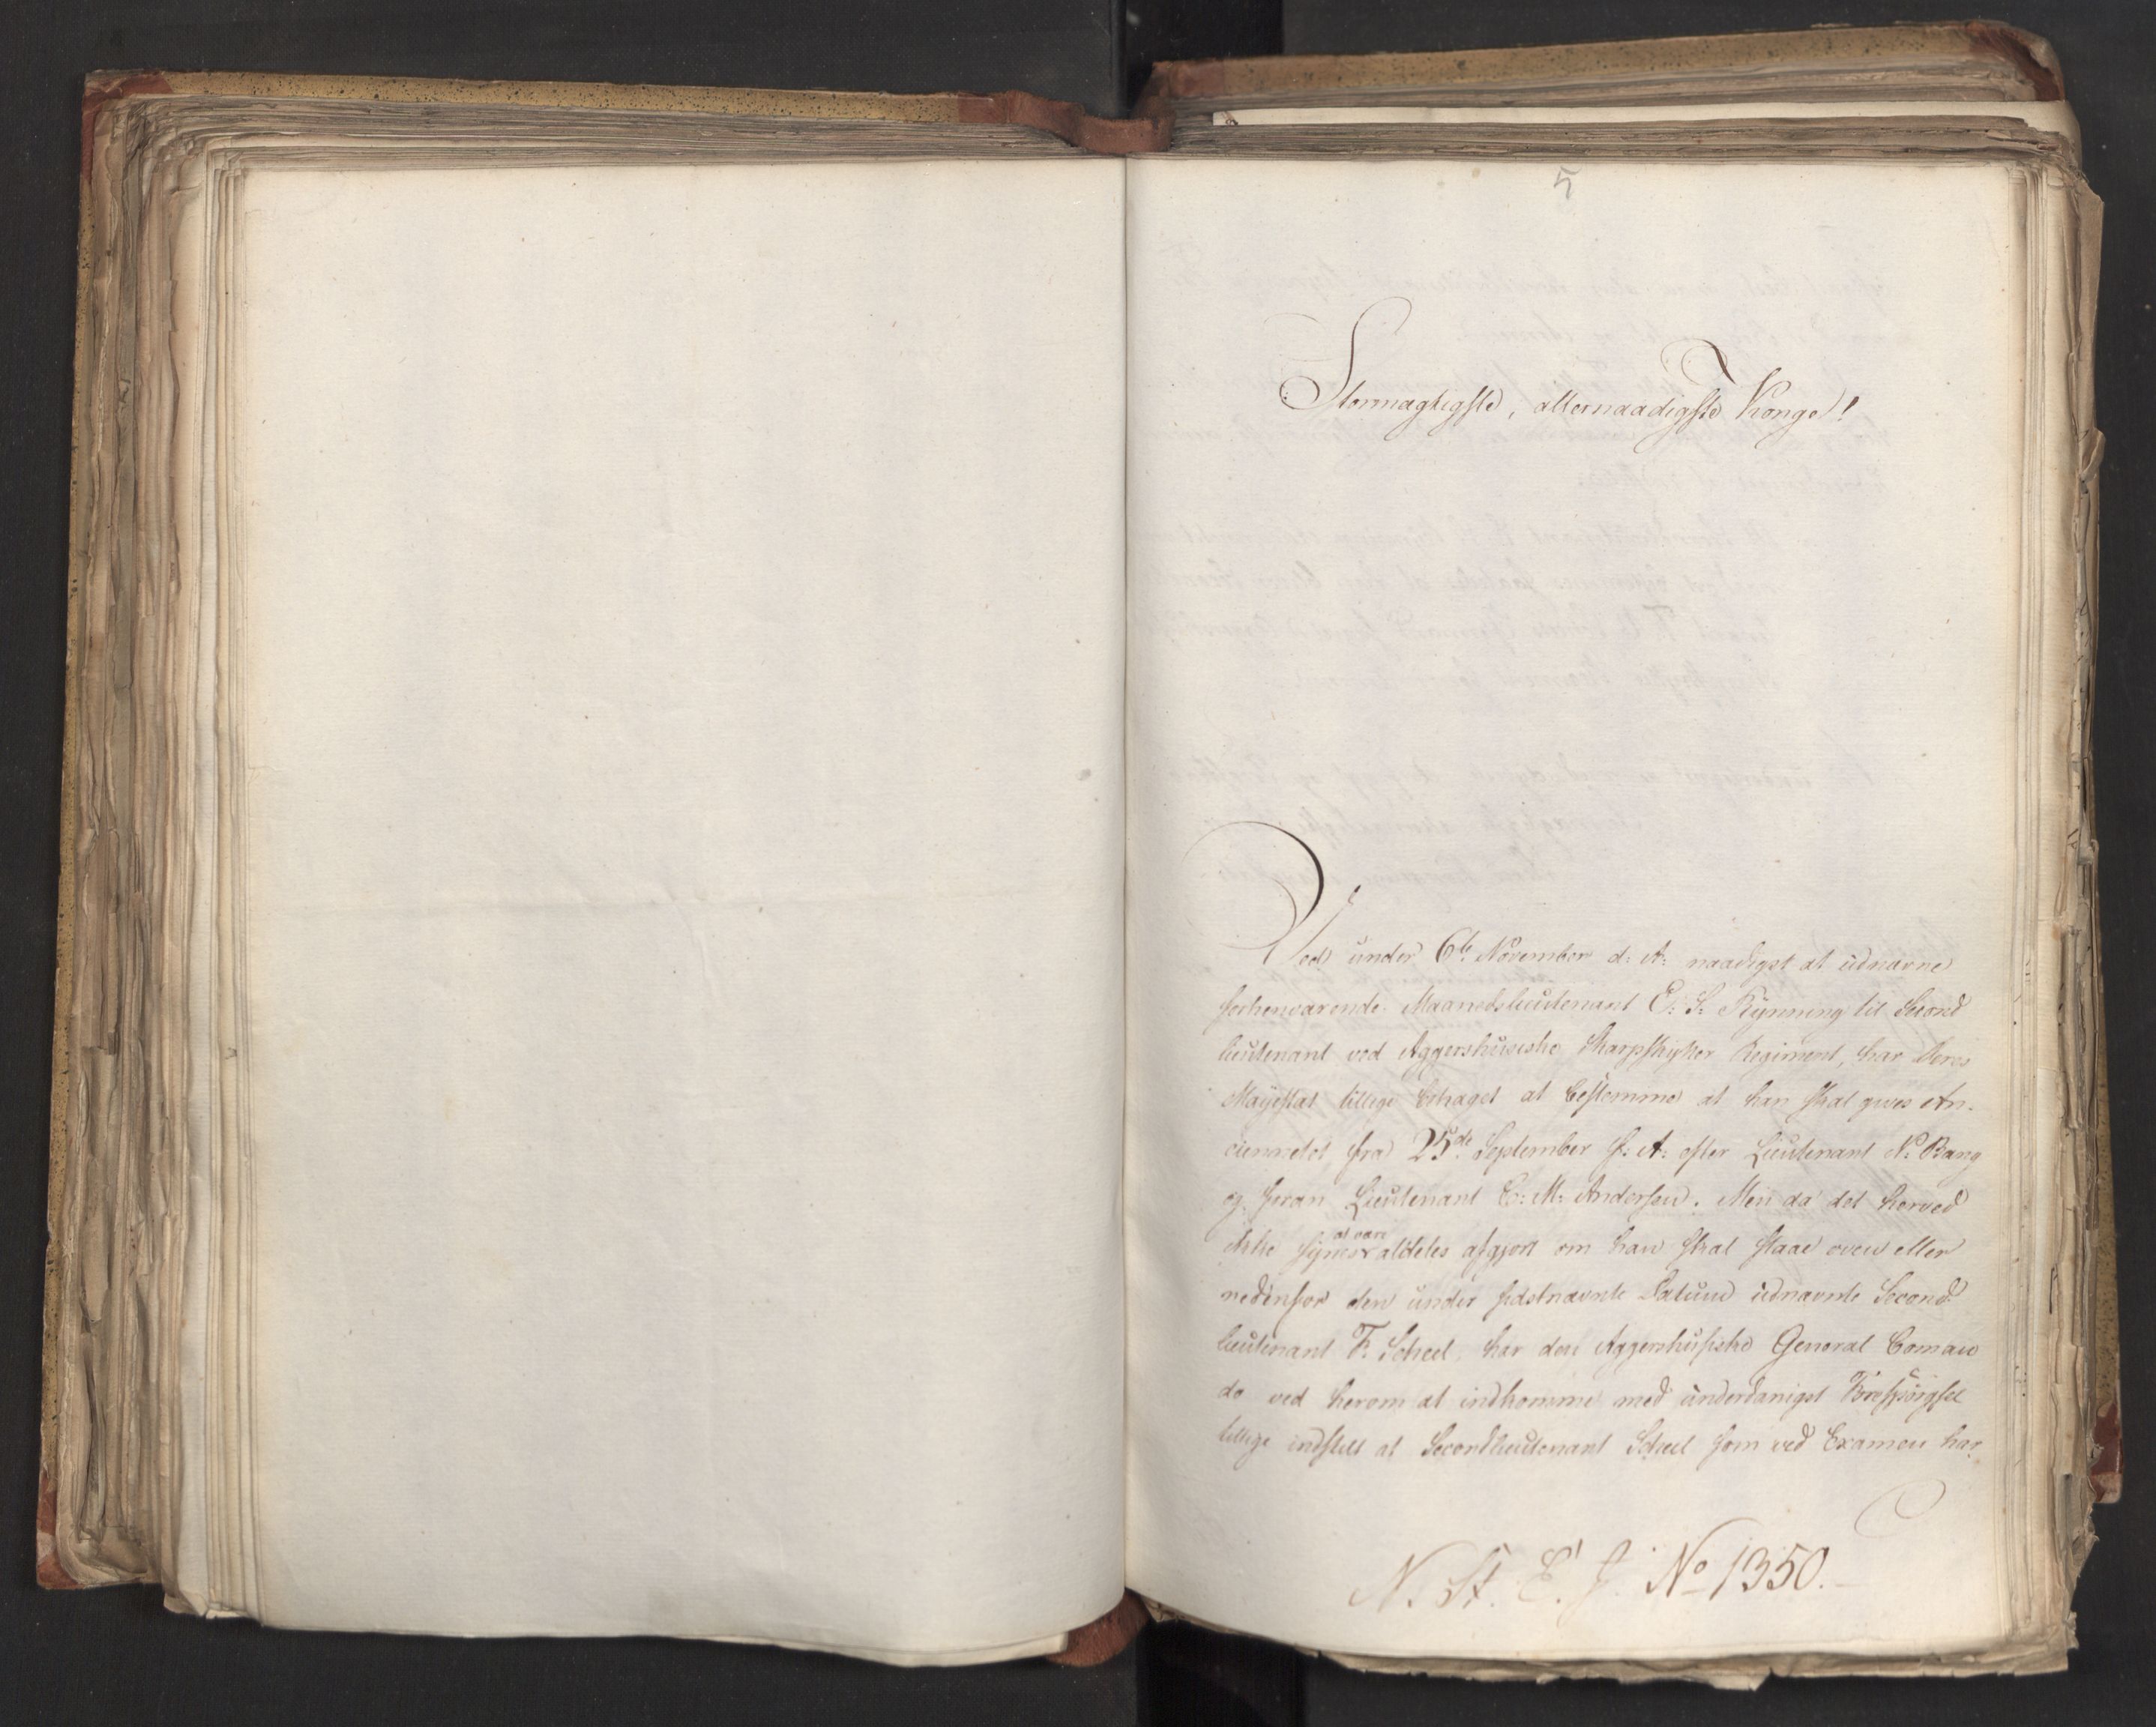 5
Stormægtigste, allernaadigste Konge!
Ved under 6te November d: A: naadigst at udnævne
forhenværende Maanedslieutenant E: S: Rynning til Second
lieutenant ved Aggershusiske Skarpskytter Regiment, har Deres
Majestæt tillige behaget at bestemme at han skal gives An-
ciennetet fra 25de September f: A: efter Lieutenant N: Bang
og foran Lieutenant C: M: Andersen. Men da det herved
ikke synes at være aldeles afgjort om han skal staae oven eller
nedenfor den under sidstnævnte Datum udnævnte Second
lieutenant F. Scheel, har den Aggershusiske General Coman
do ved herom at indkomme med underdanigst Forespørgsel
tillige indstilt at Secondlieutenant Scheel som ved Examen har
N. St. E. J. No 1350.